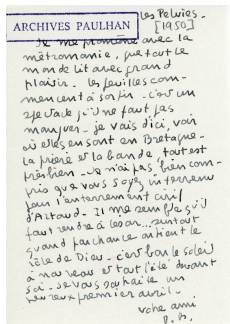 Les Pelvies -
[1950]
ARCHIVES PAULHAN
Je me promène avec la
métromanie, que tout le
monde lit avec grand
plaisir. les feuilles com-
mencent à sortir. c'est un
qu'il ne faut pas
manquer - je vais d'ici, voir
où elles en sont en Bretagne -
la prière et la bande, tout est
très bien - Je n'ai pas bien com-
pris que vous soyez intervenu
pour l'enterrement civil
d'Artaud. Il me semble qu'il
faut rendre à César... surtout
quand par chance on tient le
rôle de Dieu - c'est bon le soleil
à nouveau et tout l'été devant
soi - Je vous souhaite un
heureux premier avril -
votre ami